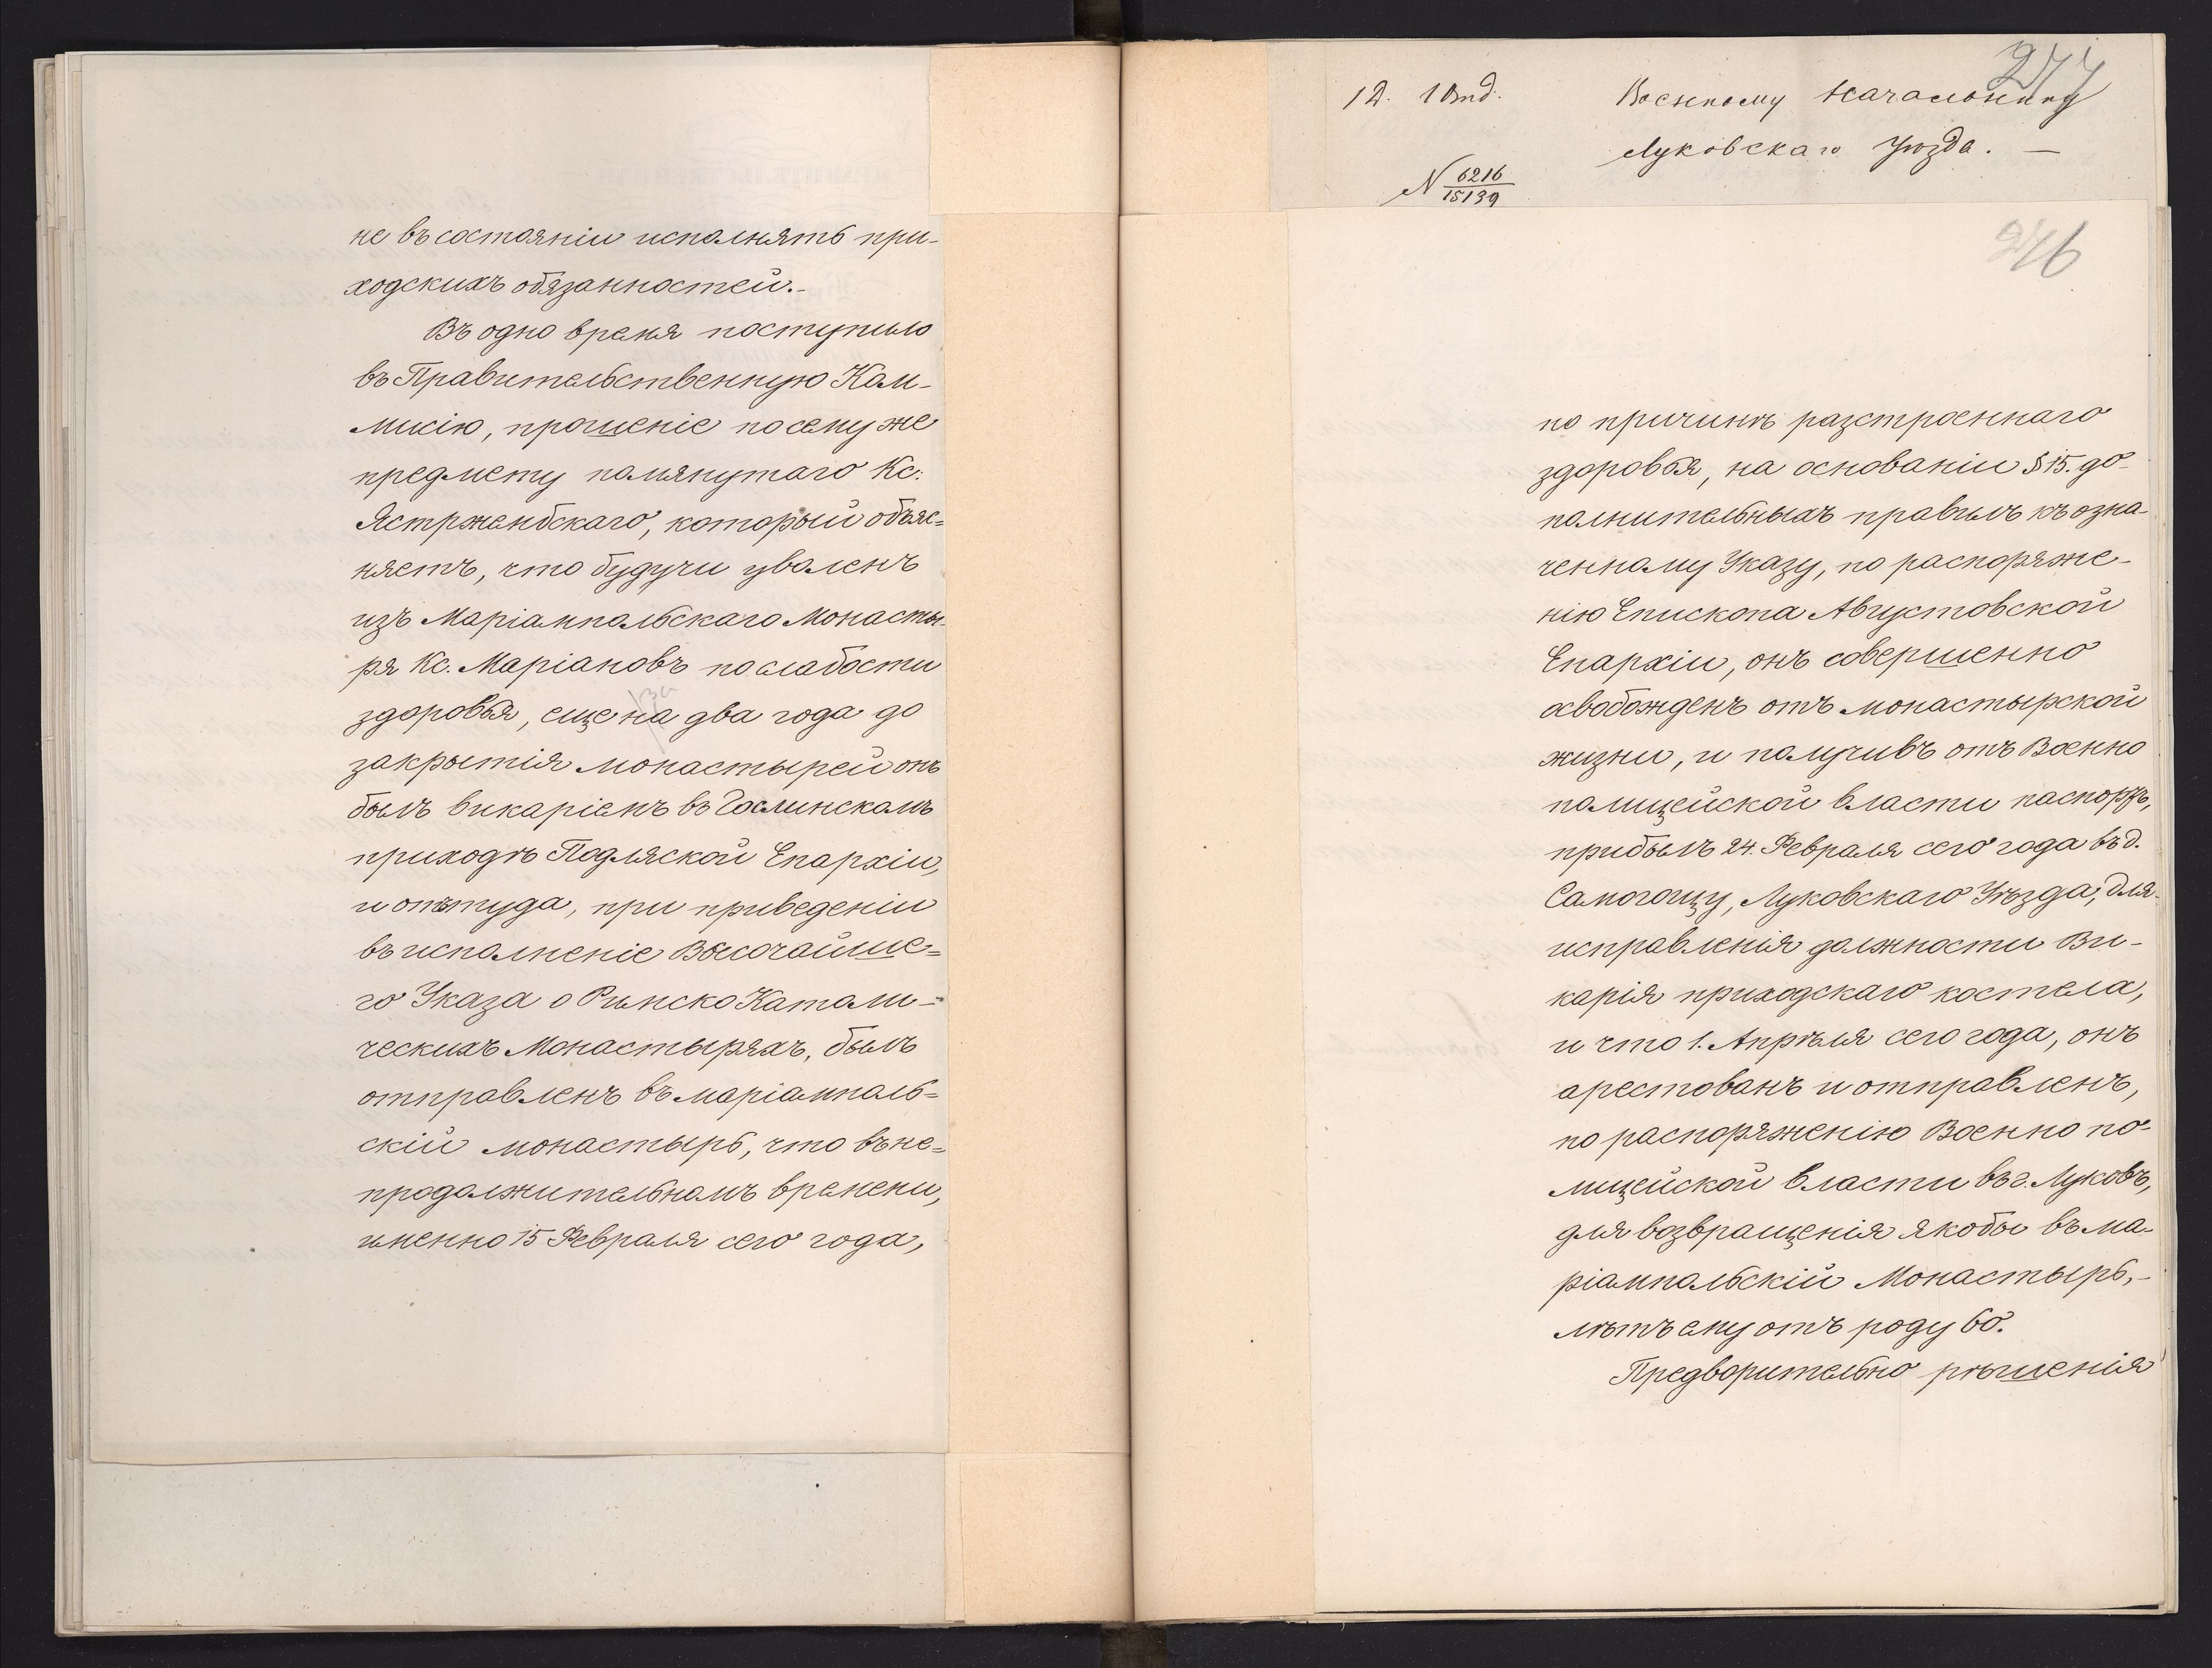 не въ состояніи исполнять при-
ходскихъ обязанностей.-
Въ одно время поступило
въ Правительственную Ком-
мисію, прошеніе по сему же
предмету помянутаго Кс:
Ястржембскаго, который объяс=
няетъ, что будучи уволенъ
изъ Маріампольскаго Монасты-
ря Кс. Маріановъ по слабости
здоровья, еще на два года до
за
закрытія монастырей онъ
былъ викаріемъ въ Гослинскомъ
приходѣ Подляской Епархіи,
и оттуда, при приведеніи
въ исполненіе Высочайше=
го Указа о Римско Католи-
ческихъ Монастыряхъ, былъ
отправленъ въ маріамполь=
скій монастырь, что въ не=
продолжительномъ времени,
именно 15 Февраля сего года,
277
12. 1 Отд.
Военному Начальнику
Луковскаго Уѣзда. —
N 6216
15139
246
по причинѣ разстроеннаго
здоровья, на основаніи § 15. до-
полнительныхъ правилъ къ озна-
ченному Указу, по распоряже-
нію Епископа Августовской
Епархіи, онъ совершенно
освобожденъ отъ монастырской
жизни, и получивъ отъ Военно
полицейской власти паспортъ,
прибылъ 24. Февраля сего года въ д.
Самогощу, Луковскаго Уѣзда, для
исправленія должности Ви-
карія приходскаго костела,
и что 1. Апрѣля сего года, онъ
арестованъ и отправленъ,
по распоряженію Военно по-
лицейской власти въ г. Луковъ,
для возвращенія якобы въ ма-
ріампольскій Монастырь,-
лѣтъ ему отъ роду 60.
Предворительно рѣшенія